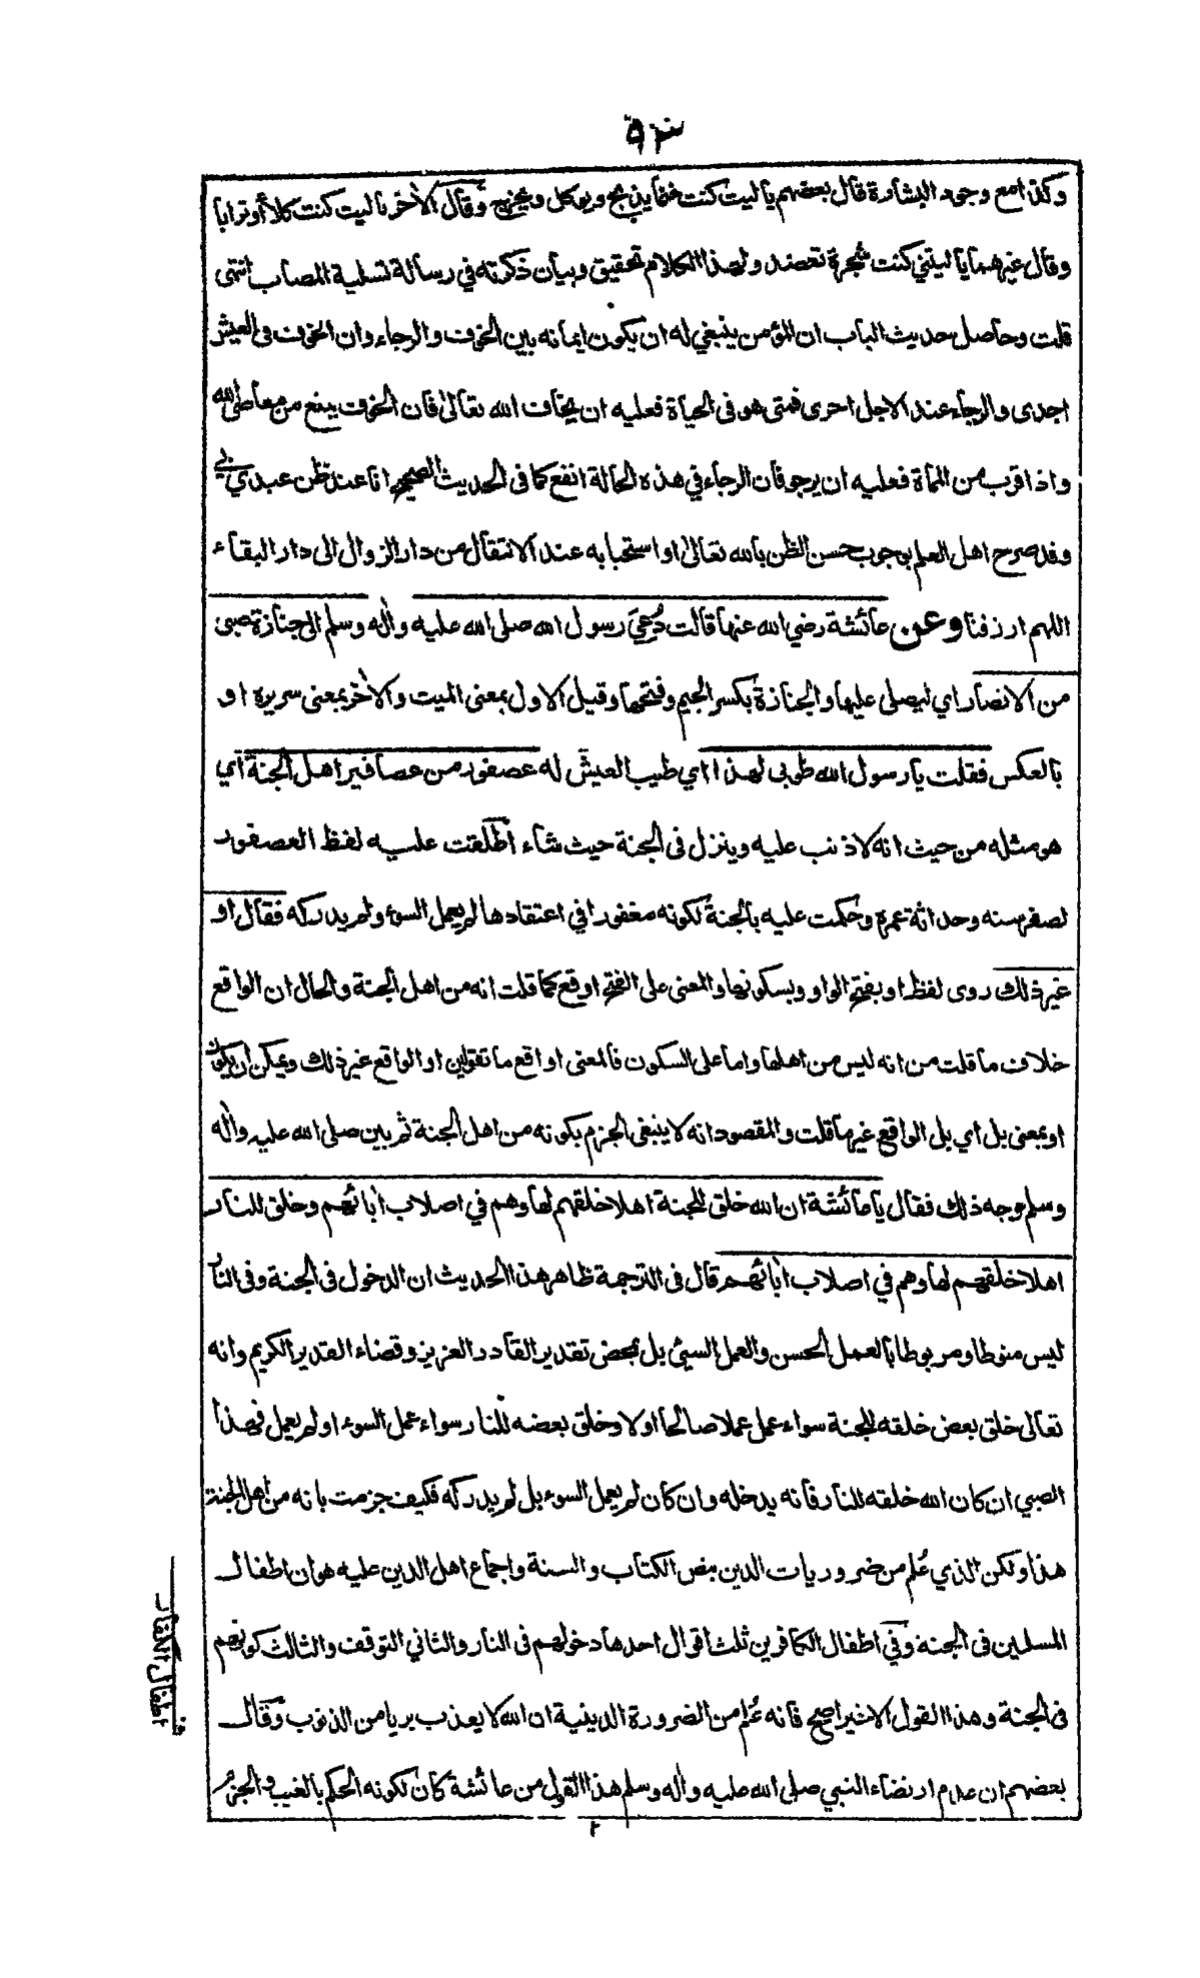 ٩٣
وكذا مع وجود البشارة قال بعضهم يا ليت كنت غنما يذبح ويوكل ويخرج وقال الآخر يا ليت كنت كلأ أو ترابا
وقال غيرهما يا ليتني كنت شجرة تعضد ولهذا الكلام تحقيق وبيان ذكرته في رسالة تسلية المصاب انتهى
قلت وحاصل حديث الباب ان المؤمن ينبغي له ان يكون ايمانه بين الخوف والرجاء وان الخوف في العيش
اجدى والرجاء عند الاجل احرى فمتى هو في الحياة فعليه ان يخاف الله تعالى فان الخوف يمنع من معاصي الله
واذا قرب من المماة فعليه ان يرجو فان الرجاء في هذه الحالة انفع كما في الحديث الصحيح انا عند ظن عبدي بي
وقد صرح اهل العلم بوجوب حسن الظن بالله تعالى او استحبابه عند الانتقال من دار الزوال الى دار البقاء
اللهم ارزقنا وعن عائشة رضي الله عنها قالت دُعي رسول الله صلى الله عليه وآله وسلم الى جنازة صبى
من الانصار اي ليصلي عليها والجنازة بكسر الجيم وفتحها وقيل الاول بمعنى الميت والآخر بمعنى سريره او
بالعكس فقلت يا رسول الله طوبى لهذا اي طيب العيش له عصفور من عصافير اهل الجنة اي
هو مثله من حيث انه لا ذنب عليه وينزل في الجنة حيث شاء اطلقت عليه لفظ العصفور
لصغر سنه وحداثة عمره وحكمت عليه بالجنة لكونه مغفورا في اعتقادها لم يعمل السوء ولم يدركه فقال او
غير ذلك روى لفظ او بفتح الواو وبسكونها والمعنى على الفتح او وقع كما قلت انه من اهل الجنة والحال ان الواقع
خلاف ما قلت من انه ليس من اهلها واما على السكون فالمعنى او اقع ما تقولين او الواقع غير ذلك ويمكن ان يكون
او بمعنى بل اي بل الواقع غير ما قلت والمقصود انه لا ينبغي الجزم بكونه من اهل الجنة ثم بين صلى الله عليه وآله
وسلم وجه ذلك فقال يا عائشة ان الله خلق للجنة اهلا خلقهم لها وهم في اصلاب آبائهم وخلق للنار
اهلا خلقهم لها وهم في اصلاب آبائهم قال في الترجمة ظاهر هذا الحديث ان الدخول في الجنة وفي النار
ليس منوطا ومربوطا بالعمل الحسن والعمل السيئ بل بمحض تقدير القادر العزيز وقضاء القدير الكريم وانه
تعالى خلق بعض خلقه للجنة سواء عمل عملا صالحا اولا وخلق بعضه للنار سواء عمل السوء او لم يعمل فهذا
الصبي ان كان الله خلقه للنار فانه يدخله وان كان لم يعمل السوء بل لم يدركه فكيف جزمت بانه من اهل الجنة
هذا ولكن الذي عُلم من ضروريات الدين بنص الكتاب والسنة واجماع اهل الدين عليه هو ان اطفال
المسلمين في الجنة وفي اطفال الكافرين ثلث اقوال احدها دخولهم في النار والثاني التوقف والثالث كونهم
في الجنة وهذا القول الاخير اصح فانه عُلم من الضرورة الدينية ان الله لا يعذب بريا من الذنوب وقال
بعضهم ان عدم ارتضاء النبي صلى الله عليه وآله وسلم هذا القول من عائشة كان لكونه الحكم بالغيب والجزم
اطفال الكفار
٢